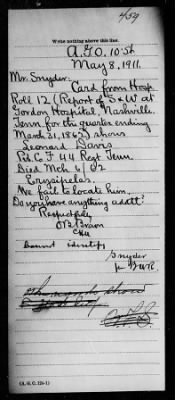 459
Write nothing above this line.
A.G.O. 10-St
May 8, 1911.
Mr. Snyder:
Card from Hosp
Roll 12 (Report of S & W at
Gordon Hospital, Nashville,
Tenn. for the quarter ending
March 31, 1862) shows
Leonard Davis
Co. F. 44 Regt Tenn.
Died Mch 6/62
Erysipelas.
We fail to locate him.
Do you have anything addtl?
Respectfully
Cannot identify
Snyder
(A. G. O. 124-1)